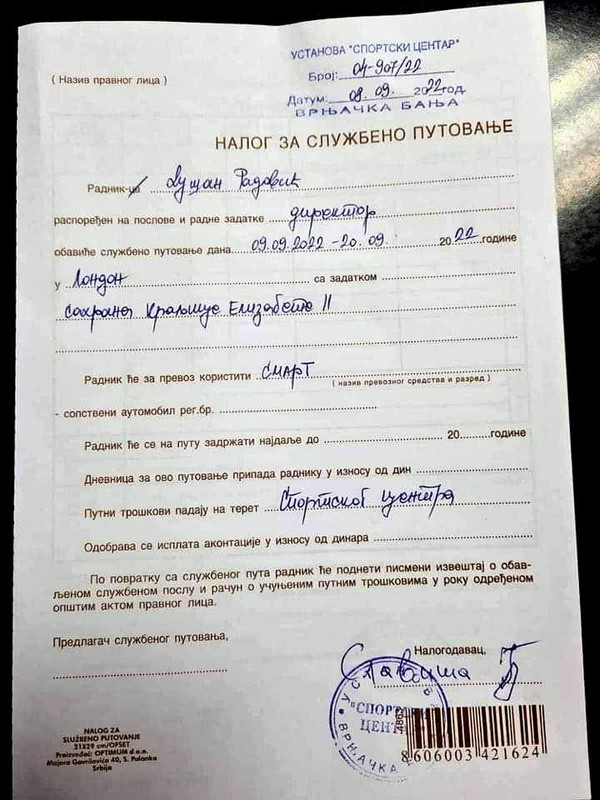 УСТАНОВА "СПОРТСКИ ЦЕНТАР"
( Назив правног лица )
Број: 04-907/22
Датум: 09.09. 2022 год.
ВРЊАЧКА БАЊА
НАЛОГ ЗА СЛУЖБЕНО ПУТОВАЊЕ
Радник-ца Душан Радовић
распоређен на послове и радне задатке директор
обавиће службено путовање дана 09.09.2022 - 20.09. 2022 године
у Лондон са задатком
сахрана Краљице Елизабете II
Радник ће за превоз користити СМАРТ
( назив превозног средства и разред )
- сопствени аутомобил рег.бр.
Радник ће се на путу задржати најдаље до 20 године
Дневница за ово путовање припада раднику у износу од дин
Путни трошкови падају на терет Спортског центра
Одобрава се исплата аконтације у износу од динара
По повратку са службеног пута радник ће поднети писмени извештај о обав-
љеном службеном послу и рачун о учуњеним путним трошковима у року одређеном
општим актом правног лица.
Предлагач службеног путовања,
Налогодавац,
Славиша
"СПОРТСКИ
ЦЕНТАР"
ВРЊАЧКА
4863
8 606003 421624
NALOG ZA
SLUŽBENO PUTOVANJE
21X29 cm/OFSET
Proizvođač: OPTIMUM d.o.o.
Majora Gavrilovića 40, S. Palanka
Srbija